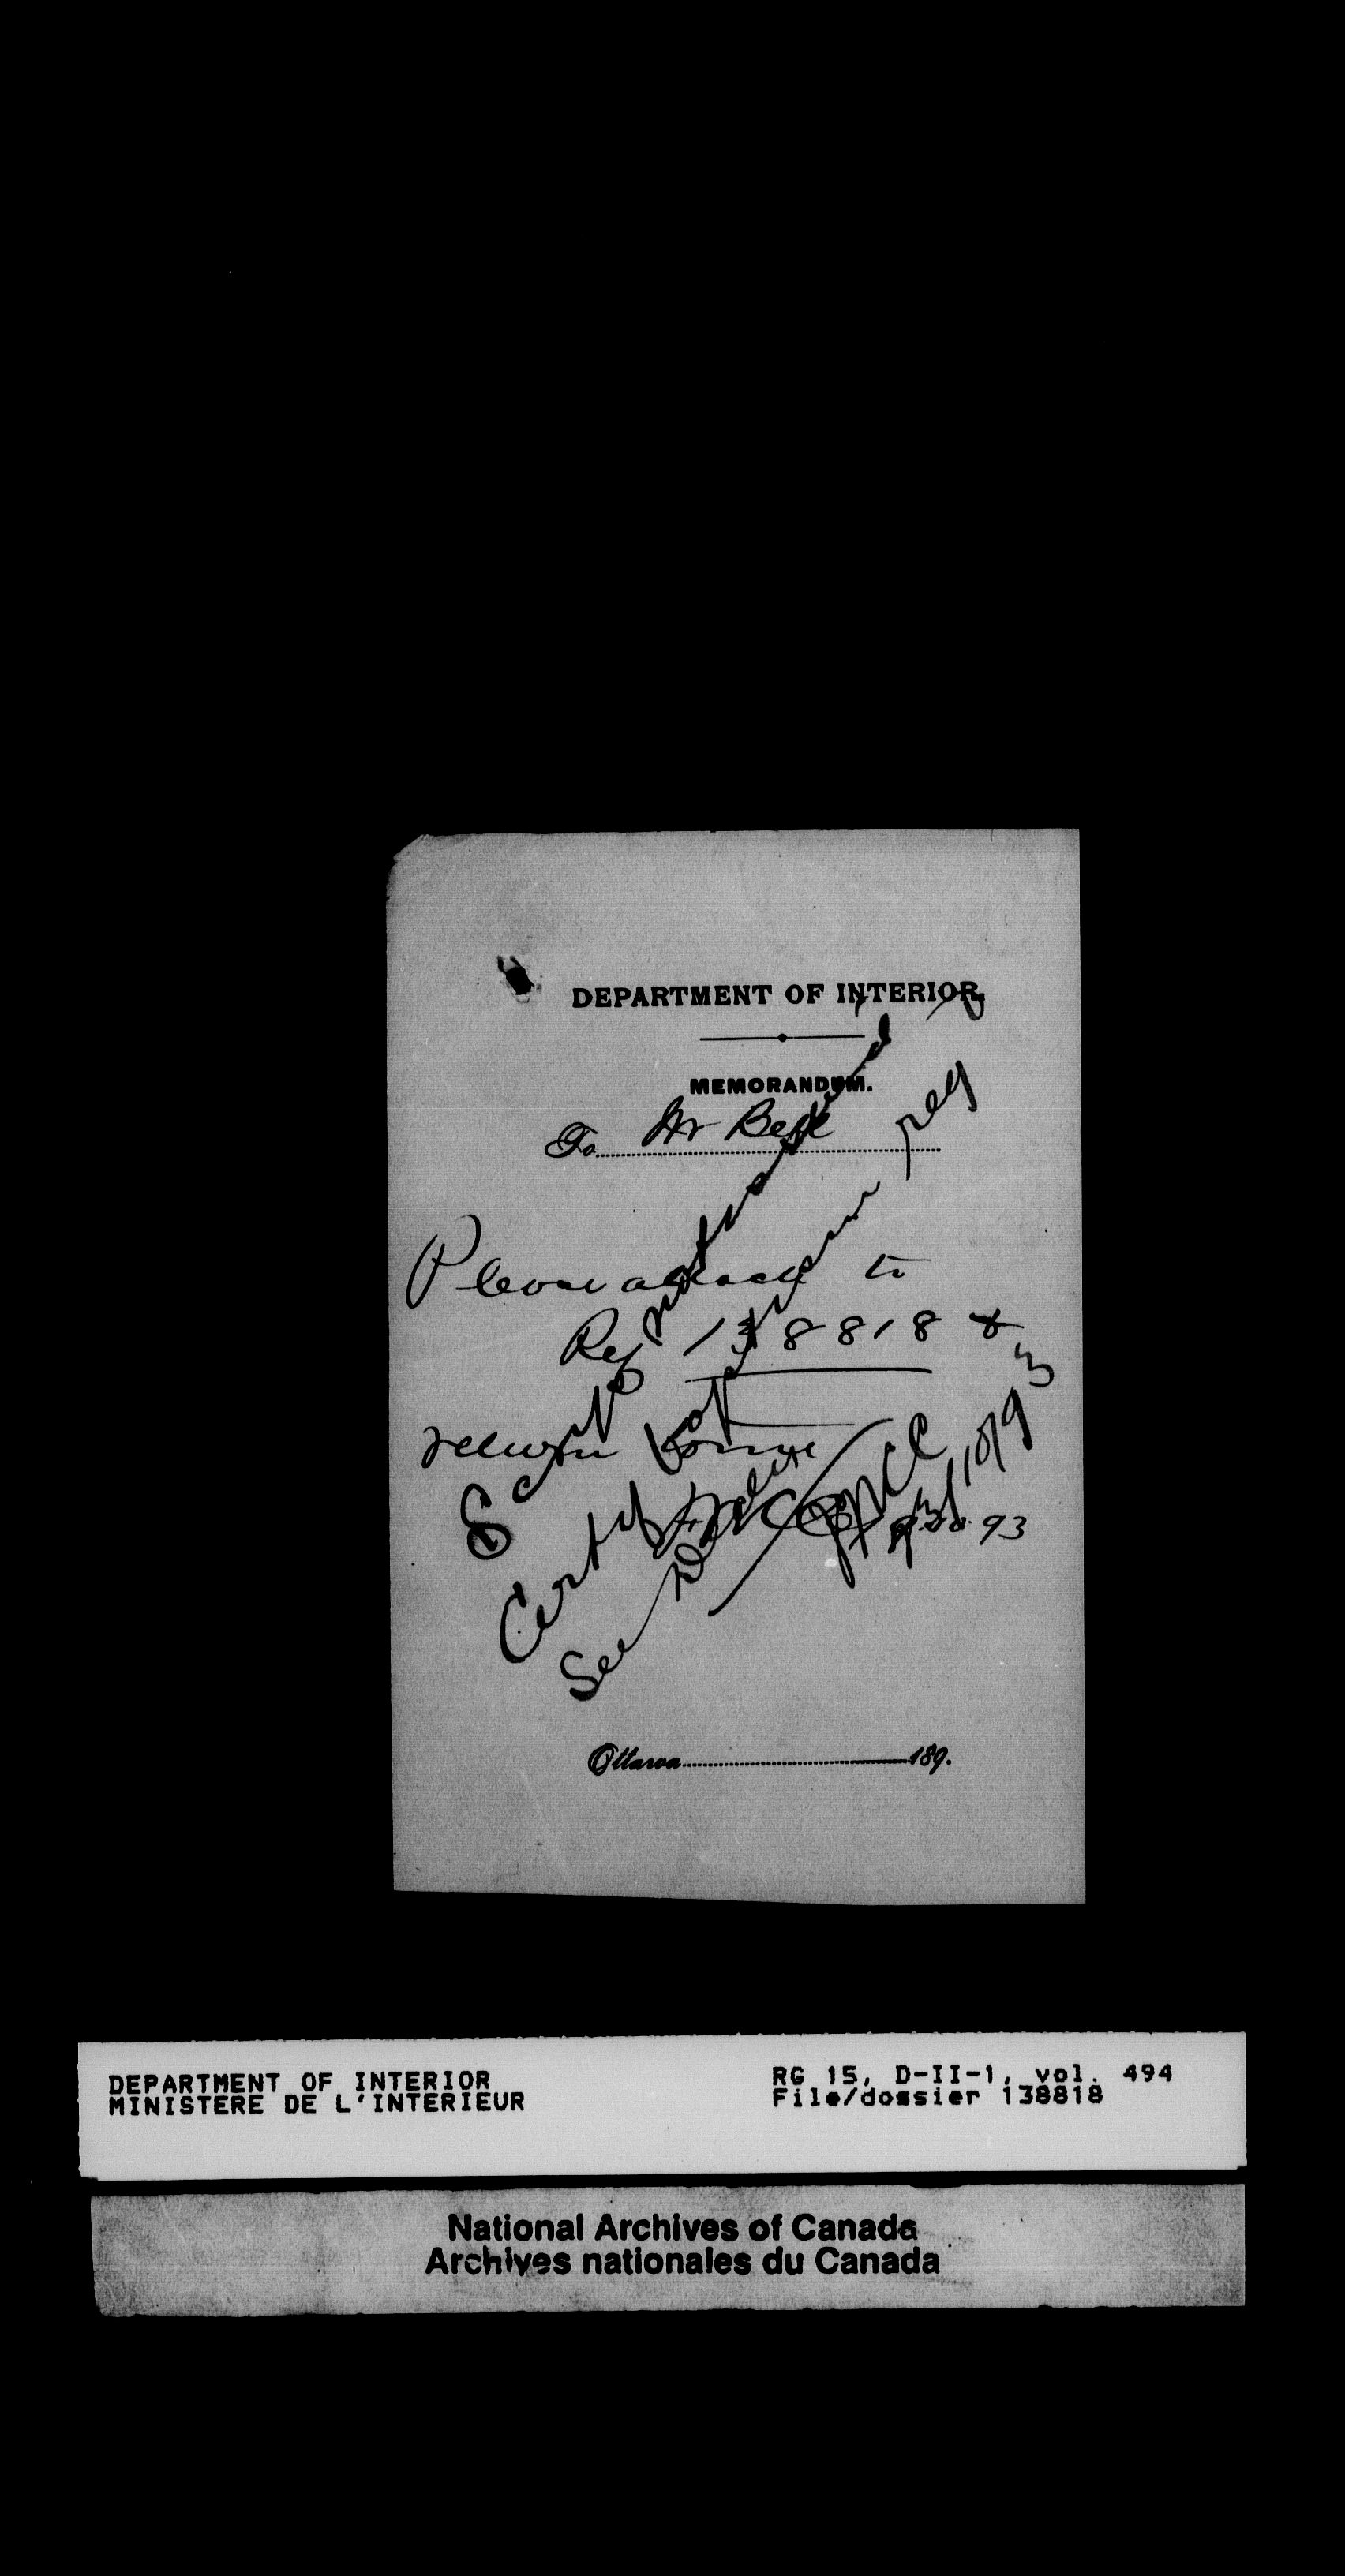 DEPARTMENT OF INTERIOR.
MEMORANDUM.
To Mr Bell
Please attach to
Ref 138818 &
return
93
Scrip not issued
Certif not given
See
31/10/93
Ottawa 189.
DEPARTMENT OF INTERIOR
MINISTERE DE L'INTERIEUR
RG 15, D-II-1, vol. 494
File/dossier 138818
National Archives of Canada
Archives nationales du Canada